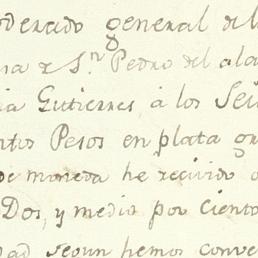 oderado general de l
na r S.n Pedro del ala
ia Gutierres à los Señ
ntos Pesos en plata gr
de moneda he recivido
Dos, y medio por Ciento
dad segun hemos conve